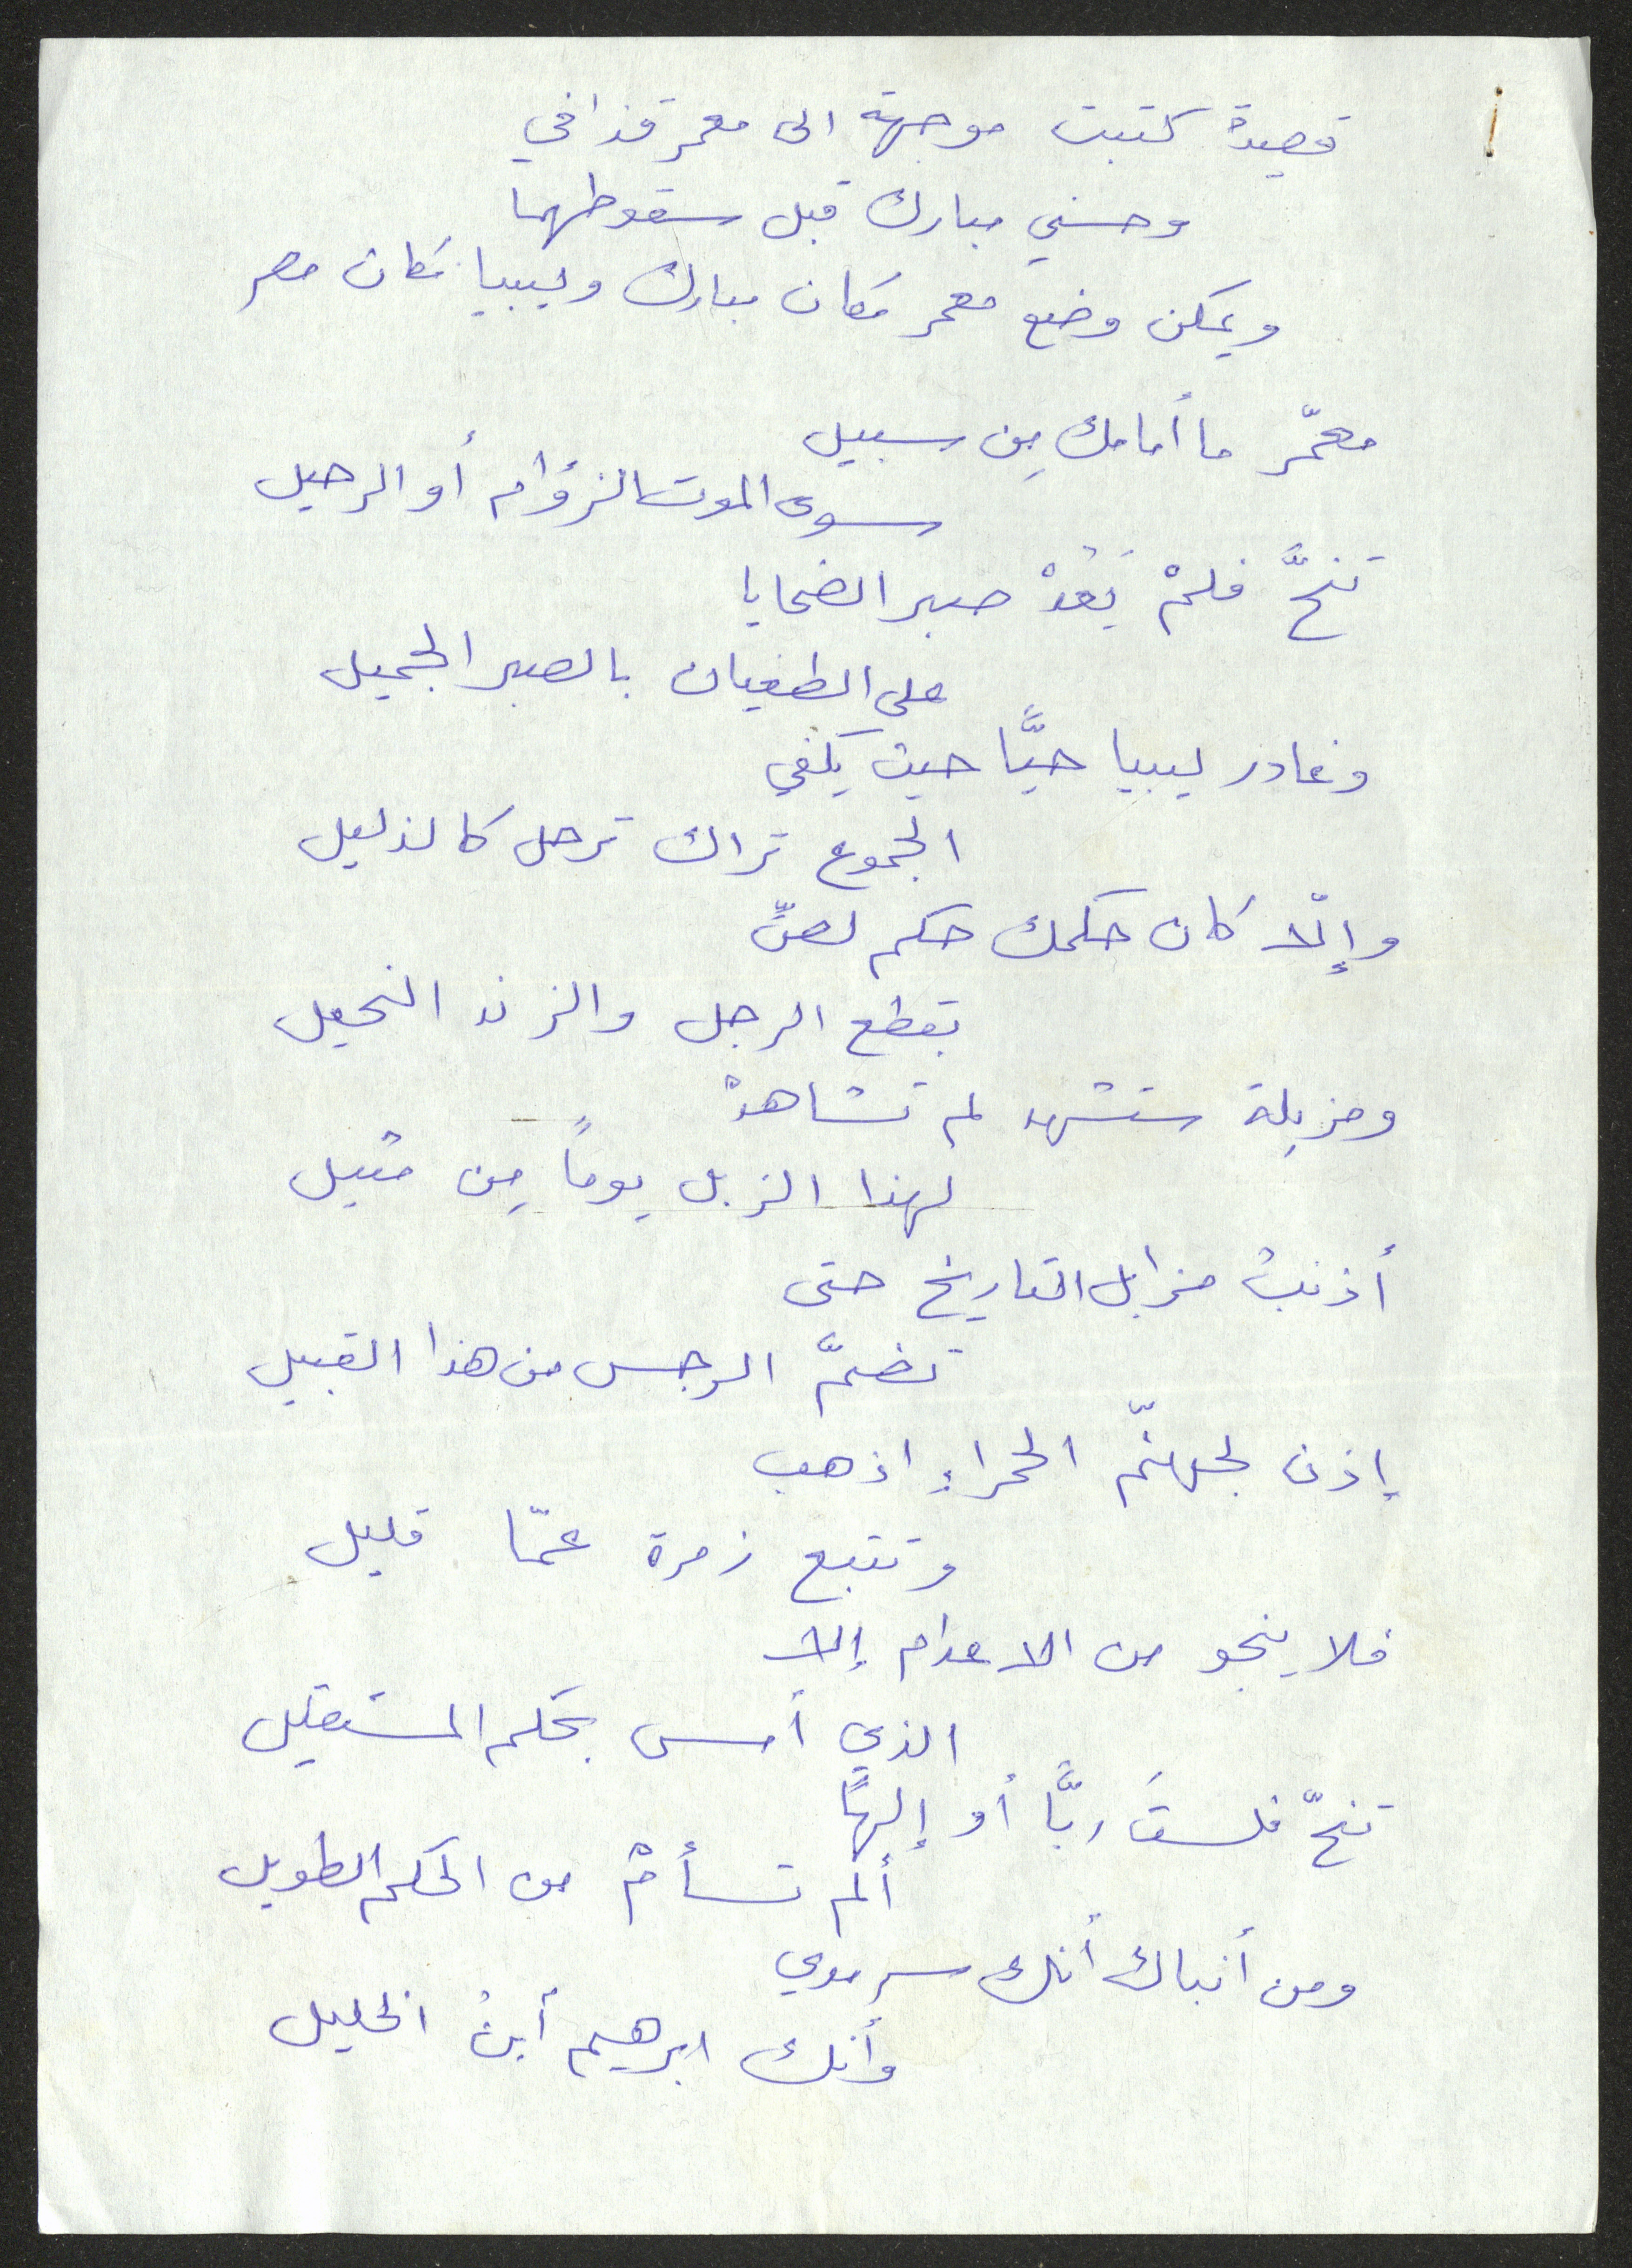 قصيدة كتبت موجهة الى معمر قذافي
وحسني مبارك قبل سقوطهما
ويمكن وضع معمر مكان مبارك وليبيا مكان مصر
معمّر ما أمامك مِن سبيل
سوى الموت الزؤام أو الرحيل
تنحَّ فلمْ يَعُدْ صبر الضحايا
على الطغيان بالصبر الجميل
وغادر ليبيا حيًّا حيث يكفي
الجموع تراك ترحل كالذليل
وإلّا كان حكمك حكم لصٍّ
بقطع الرجل والزند النحيل
ومزبلة ستشهد لم تشاهدْ
لهذا الزبل يوماً مِن مثيل
أذنبُ مزابل التاريخ حتى
تضمَّ الرجس من هذا القبيل
إذن لجهنّم الحمراءِ اذهب
وتتبع زمرة عمّا قليل
فلا ينجو من الاعدام إلا
الذي أمسى بحكم المستقيل
تنحّ فلستَ ربًّا أو إلهًا
ألم تسأمْ من الحكم الطويل
ومن أنباك أنك سرمدي
وأنك ابرهيم أبنُ الخليل